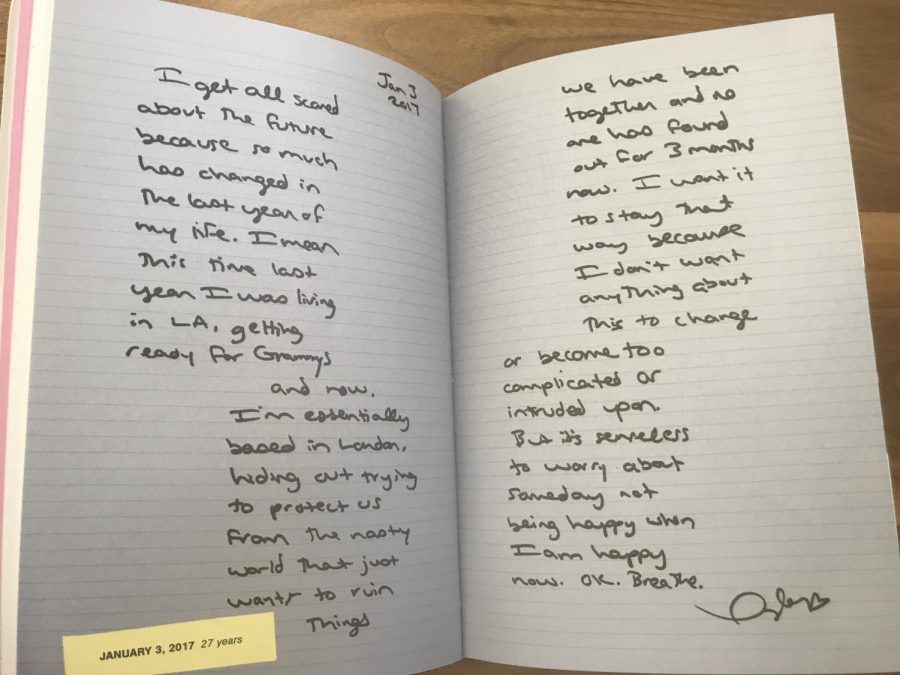 Jan 3
2017
I get all scared
about the future
because so much
has changed in
the last year of
my life. I mean
this time last
year I was living
in LA, getting
ready for Grammys
and now,
I'm essentially
based in London,
hiding out trying
to protect us
from the nasty
world that just
wants to ruin
things
JANUARY 3, 2017 27 years
we have been
together and no
one has found
out for 3 months
now. I want it
to stay that
way because
I don't want
anything about
this to change
or become too
complicated or
intruded upon.
But it's senseless
to worry about
someday not
being happy when
I am happy
now. OK. Breathe.